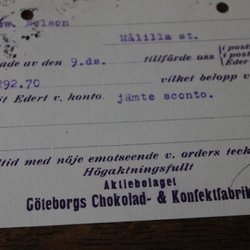 Nelson
Målilla st.
ade av den 9.ds. tillförde oss i post
i post
Eder
292.70 vilket belopp v
it Edert v. konto. jämte sconto.
lltid med nöje emotseende v. orders teck
Högaktningsfullt
Aktiebolaget
Göteborgs Chokolad- & Konfektfabrik